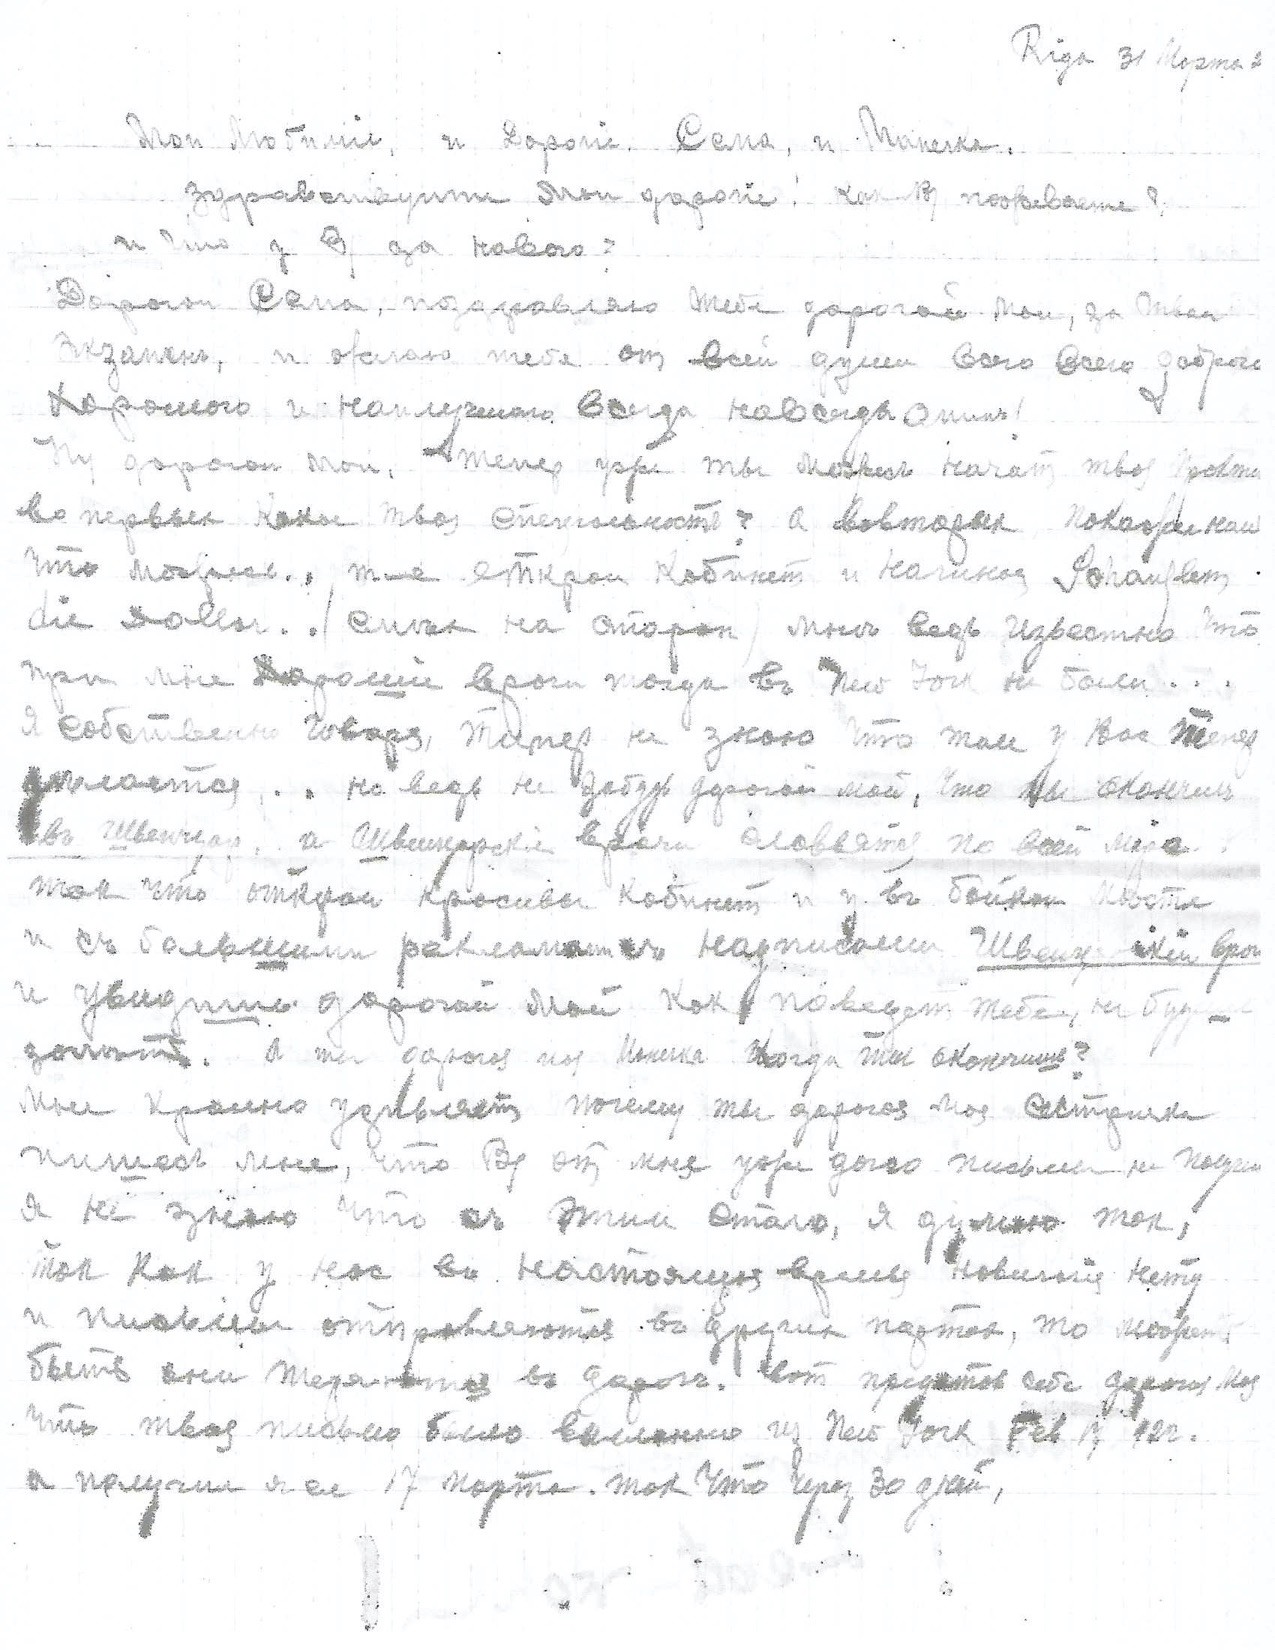 Riga 31 Марта 2
Мои Любимiе, и Дорогiе. Сема, и Манечка.
Здравствуите Мои дорогiе! как Вы поживаете?
и Что у Вас за Нового?
Дорогои Сема, поздравляю тебе дорогой мои, за твои
Экзамены, и желаю тебе от всей души Всего Всего доброго
Хорошого и наилучшого Всегда навсегда Аминь!
Ну дорогои мои, тепер уже ты можеш начать твоя практи
во первых какая твоя специальность? а вовторых, покаже нам
Что можеш.., открои Кабинет и начиная
die Dollar.. /смых на сторон/ мнъ ведь известно Что
при мне Хорошiе врочи тогда въ New York не были...
Я Собственно говоря, тепер не знаю что там у Вас тепер
дълается... но ведь не забудь дорогой мой, что ты окончил
въ Швеицар. а Швеицарскiе врачи славятся по всей мiре.
так что открои красивы Кабинет и у въ бойком мъсте
и съ большими рекламами съ надписами Швеиц скiй врач
и увидишь дорогой мой как поведет тебе, не буд
. А ты дорогая моя Манечка Когда ты окончишь?
Мне краине удивляеть почему ты дорогая моя сестричка
пишеш мне, что Вы от меня уже долго письма не получ
Я не знаю что съ этим стало, я думаю так,
так как у нас въ настоящея времья навигацiя нету
и письмы отправляются въ других портах, то может
быть они теряются въ дороге. Вот предстов себе дорогая моя
что твоя письмо было высланно из New York Feb 17 г.
а получил я ее 17 марта. так что через 30 дней,